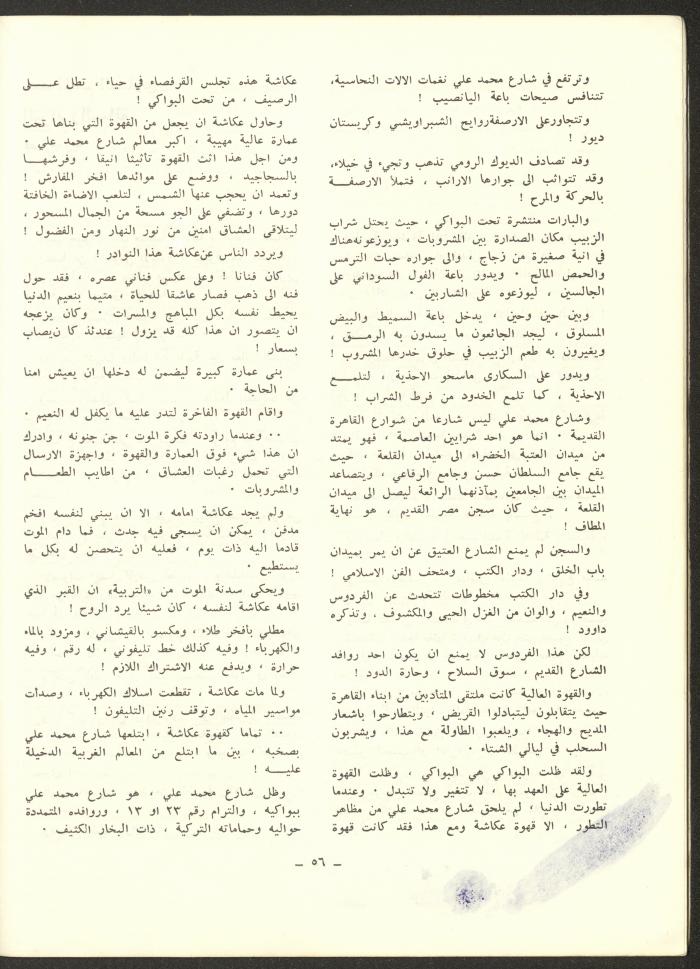 وترتفع في شارع محمد علي نغمات الالات النحاسية،
تتنافس صيحات باعة اليانصيب !
وتتجاورعلى الارصفةروايح الشبراويشي وكريستان
ديور !
وقد تصادف الديوك الرومي تذهب وتجيء في خيلاء،
وقد تتواثب الى جوارها الارانب ، فتملأ الارصفــة
بالحركة والمرح !
والبارات منتشرة تحت البواكي ، حيث يحتل شراب
الزبيب مكان الصدارة بين المشروبات ، ويوزعونههناك
في انية صغيرة من زجاج ، والى جواره حبات الترمس
والحمص المالح ٠ ويدور باعة الفول السوداني على
الجالسين ، ليوزعوه على الشاربين ٠
وبين حين وحين ، يدخل باعة السميط والبيض
المسلوق ، ليجد الجائعون ما يسدون به الرمــق ،
ويغيرون به طعم الزبيب في حلوق خدرها المشروب !
ويدور على السكارى ماسحو الاحذية ، لتلمــع
الاحذية ، كما تلمع الخدود من فرط الشراب !
وشارع محمد علي ليس شارعا من شوارع القاهرة
القديمة ٠ انما هو احد شرايين العاصمة ، فهو يمتد
من ميدان العتبة الخضراء الى ميدان القلعة ، حيث
يقع جامع السلطان حسن وجامع الرفاعي ، ويتصاعد
الميدان بين الجامعين بمآذنهما الرائعة ليصل الى ميدان
القلعة ، حيث كان سجن مصر القديم ، هو نهاية
المطاف !
والسجن لم يمنع الشارع العتيق عن ان يمر بميدان
باب الخلق ، ودار الكتب ، ومتحف الفن الاسلامي !
وفي دار الكتب مخطوطات تتحدث عن الفردوس
والنعيم ، والوان من الغزل الحيى والمكشوف ، وتذكره
داوود !
لكن هذا الفردوس لا يمنع ان يكون احد روافد
الشارع القديم ، سوق السلاح ، وحارة الدود !
والقهوة العالية كانت ملتقى المتأدبين من ابناء القاهرة
حيث يتقابلون ليتبادلوا القريض ، ويتطارحوا باشعار
المديح والهجاء ، ويلعبوا الطاولة مع هذا ، ويشربون
السحلب في ليالي الشتاء ٠
ولقد ظلت البواكي هي البواكي ، وظلت القهوة
العالية على العهد بها ، لا تتغير ولا تتبدل ٠ وعندما
تطورت الدنيا ، لم يلحق شارع محمد علي من مظاهر
التطور ، الا قهوة عكاشة ومع هذا فقد كانت قهوة
عكاشة هذه تجلس القرفصاء في حياء ، تطل عــلى
الرصيف ، من تحت البواكي !
وحاول عكاشة ان يجعل من القهوة التي بناها تحت
عمارة عالية مهيبة ، اكبر معالم شارع محمد علي ٠
ومن اجل هذا اثث القهوة تأثيثا انيقا ، وفرشهــا
بالسجاجيد ، ووضع على موائدها افخر المفارش !
وتعمد ان يحجب عنها الشمس ، لتلعب الاضاءة الخافتة
دورها ، وتضفي على الجو مسحة من الجمال المسحور ،
ليتلاقى العشاق امنين من نور النهار ومن الفضول !
ويردد الناس عنعكاشة هذا النوادر !
كان فنانا ! وعلى عكس فناني عصره ، فقد حول
فنه الى ذهب فصار عاشقا للحياة ، متيما بنعيم الدنيا
يحيط نفسه بكل المباهج والمسرات ٠ وكان يزعجه
ان يتصور ان هذا كله قد يزول ! عندئذ كا نيصاب
بسعار !
بنى عمارة كبيرة ليضمن له دخلها ان يعيش امنا
من الحاجة ٠
واقام القهوة الفاخرة لتدر عليه ما يكفل له النعيم ٠
٠٠ وعندما راودته فكرة الموت ، جن جنونه ، وادرك
ان هذا شيء فوق العمارة والقهوة ، واجهزة الارسال
التي تحمل رغبات العشاق ، من اطايب الطعــام
والمشروبات ٠
ولم يجد عكاشة امامه ، الا ان يبني لنفسه افخم
مدفن ، يمكن ان يسجى فيه جدث ، فما دام الموت
قادما اليه ذات يوم ، فعليه ان يتحصن له بكل ما
يستطيع ٠
ويحكى سدنة الموت من «التربية» ان القبر الذي
اقامه عكاشة لنفسه ، كان شيئا يرد الروح !
مطلي بأفخر طلاء ، ومكسو بالقيشاني ، ومزود بالماء
والكهرباء ! وفيه كذلك خط تليفوني ، له رقم ، وفيه
حرارة ، ويدفع عنه الاشتراك اللازم !
ولما مات عكاشة ، تقطعت اسلاك الكهرباء ، وصدأت
مواسير المياه ، وتوقف رنين التليفون !
٠٠ تماما كقهوة عكاشة ، ابتلعها شارع محمد علي
بصخبه ، بين ما ابتلع من المعالم الغربية الدخيلة
عليــه !
وظل شارع محمد علي ، هو شارع محمد علي
ببواكيه ، والترام رقم ٢٣ او ١٣ ، وروافده المتمددة
حواليه وحماماته التركية ، ذات البخار الكثيف ٠
– ٥٦ –